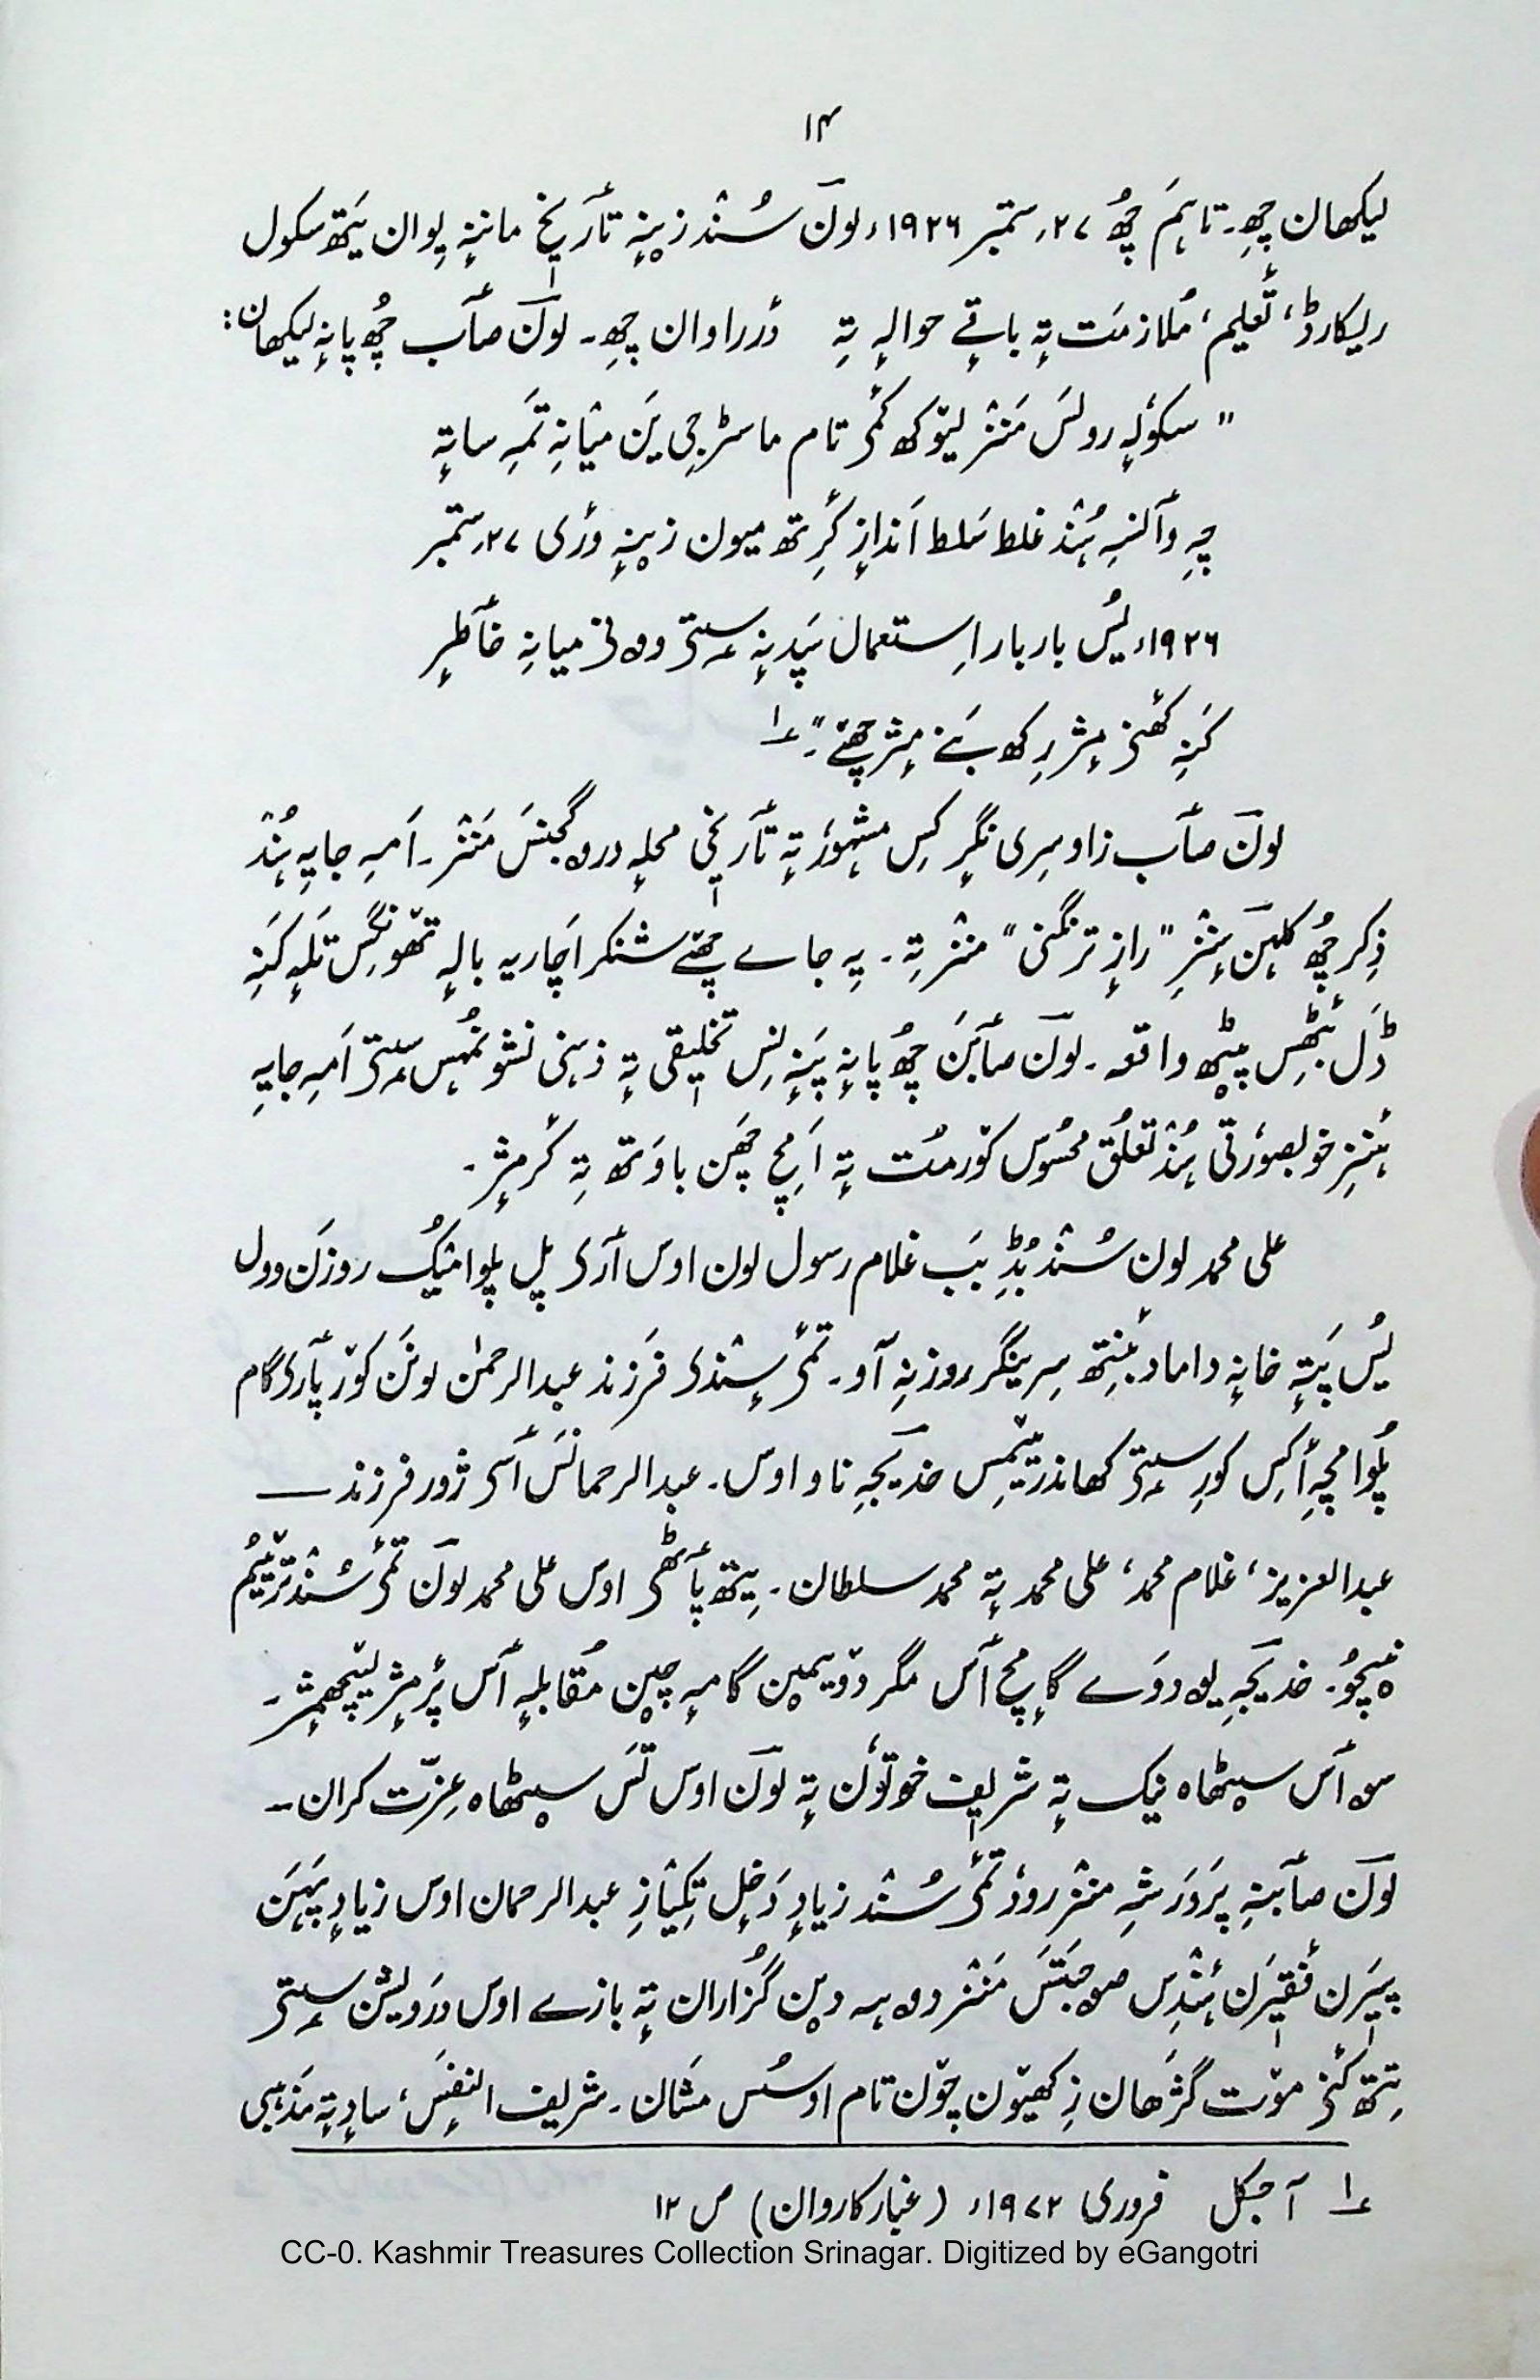 ۱۴
لیکھان چھِ۔ تاہم چھُ ۲۷؍ ستمبر ۱۹۲۶ء لونَ سُنٛد زینہٕ تأریٖخ ماننہٕ یِوان یَتھ سکول
ریکارڈ، تٔعلیم، مُلازمَت تہٕ باقے حوالہٕ تہِ دٔرراوان چھِ۔ لونَ صأب چھُ پانہٕ لیکھان:
"سکوٗلہٕ رولَس مَنٛز لیوٚکھ کٔمۍ تام ماسٹر جی یَن میٛانہِ تَمہِ ساتہٕ
چہِ وأنسہِ ہُنٛد غلط سَلط اَندازٕ کٔرِتھ میون زینہٕ وٕری ۲۷؍ ستمبر
۱۹۲۶ء یُس بار بار اِستعمال سَپدنہٕ سۭتۍ وۄنۍ میانہِ خأطرٕ
کَنہِ کھٔنۍ مِژ رِکھ بَنے مِژ چھےٚ"۔ ؎۱
لونَ صأب زاو سِری نگر کِس مشہوٗر تہٕ تأریٖخی محلہٕ درٛوگجنَس مَنٛز۔ اَمہِ جایہِ ہُنٛد
ذِکر چھُ کلہنَ سٕنٛزِ "راز ترنگنی" منٛز تہِ۔ یہِ جاے چھےٚ شنکراچاریہ بالہٕ تھوٚنٛگِس تَلہٕ کَنہِ
ڈَل بٔٹھِس پیٚٹھ واقعہ۔ لونَ صأبَن چھُ پانہٕ پَننِس تخلیٖقی تہٕ ذہنی نشو نُمہس سۭتۍ اَمہِ جایہِ
ہٕنٛزِ خوبصوٗرتی ہُنٛد تعلُق محسوٗس کوٚرمُت تہٕ اَمِچ چھَن باوَتھ تہِ کٔرمٕژ۔
علی محمد لون سُنٛد بُڈٕ بَب غلام رسول لون اوس أرۍ پل پلوامُک روزَن وول
یُس پَتہٕ خانہٕ داماد بٔنِتھ سِرینگر روزنہِ آو۔ تٔمۍ سٕنٛدۍ فَرزند عبدالرحمٰن لونَن کوٚر پأرۍ گام
پُلوامچہِ أکِس کورِ سۭتۍ کھاندر یٚمِس خدیجہِ ناو اوس۔ عبدالرحمانَس أسۍ ژور فرزند —
عبدالعزیز، غلام محمد، علی محمد تہٕ محمد سلطان۔ یِتھ پأٹھۍ اوس علی محمد لونَ تٔمۍ سُنٛد ترٛیٚیُم
نیٚچُو۔ خدیجہِ یوٚدوَے گامِچ أس مگر دوٚیِمیَن گامہِ چین مُقابلہٕ أس پٔرمٕژ لیٚچھمٕژ۔
سۄ أس سیٚٹھاہ نیک تہٕ شریٖف خوتوٗن تہٕ لونَ اوس تَس سیٚٹھاہ عِزّت کران۔
لونَ صأبنہِ پَروَرشہِ منٛز روٗد تٔمۍ سُنٛد زیادٕ دَخٕل تِکیازِ عبدالرحمان اوس زیادٕ پَہَن
پیٖرن فٔقیٖرَن ہٕنٛدِس صۄحبتَس مَنٛز دۄہہ دین گُزاران تہٕ بازے اوس دَرویشَن سۭتۍ
یِتھ کٔنۍ موٚت گژھان زِ کھیوٚن چوٚن تام اوسُس مشان۔ شریف النفِس، سادٕ تہٕ مَذہبی
؎۱ آجکل فروری ۱۹۷۲ء (غبار کاروان) ص ۱۲
CC-0. Kashmir Treasures Collection Srinagar. Digitized by eGangotri